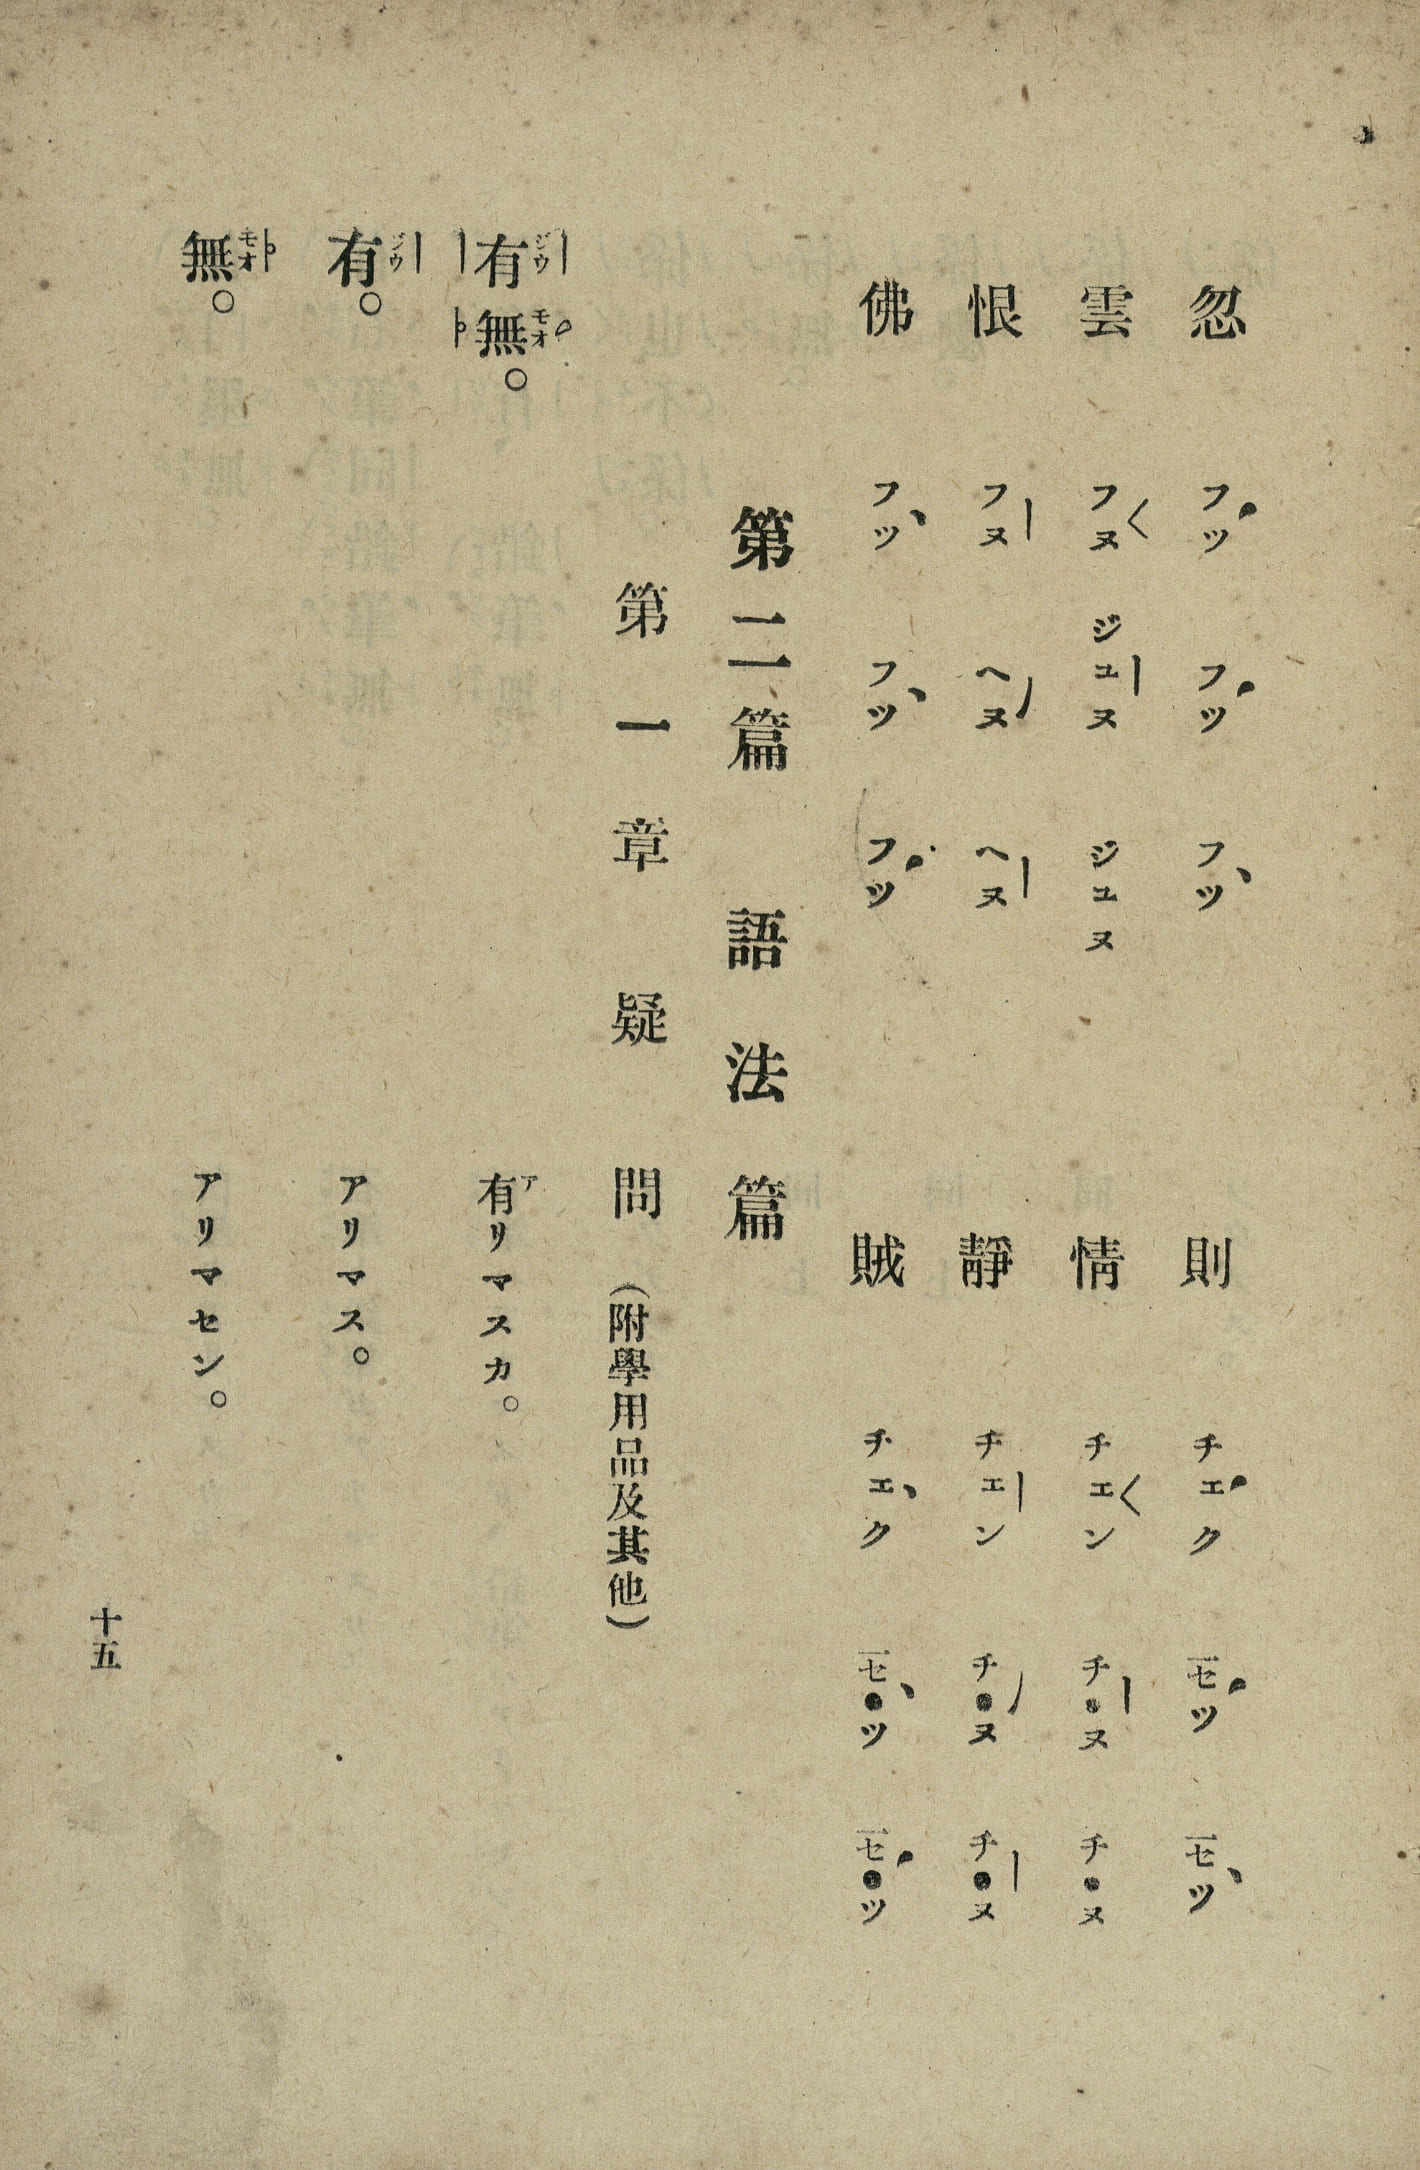 忽 フツ フツ フツ 則 チエク セツ セツ
雲 フヌ ジユヌ ジユヌ 情 チエン チ●ヌ チ●ヌ
恨 フヌ ヘヌ ヘヌ 靜 チエン チ●ヌ チ●ヌ
佛 フツ フツ フツ 賊 チエク セ●ツ セ●ツ
第二篇 語法篇
第一章 疑問 (附學用品及其他)
有ジウ無モオ。 有アリマスカ。
有ジウ。 アリマス。
無モオ。 アリマセン。
十五